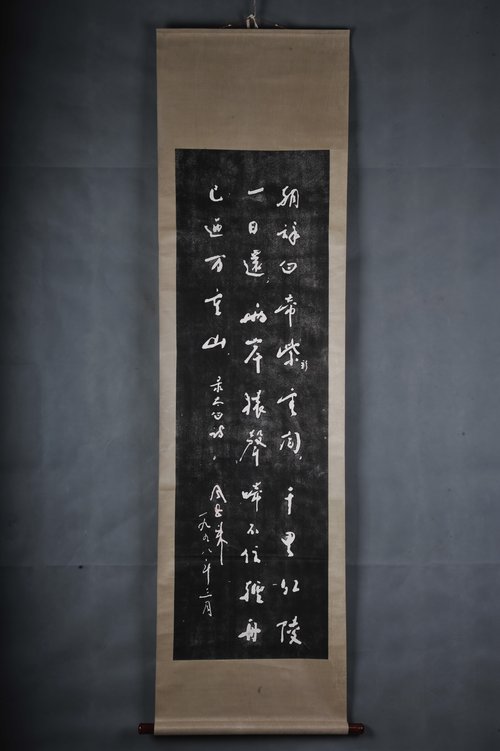 朝辞白帝彩云间，千里江陵
一日還，两岸猿聲啼不住輕舟
已過万重山
录太白诗。
周恩来
一九五八年三月